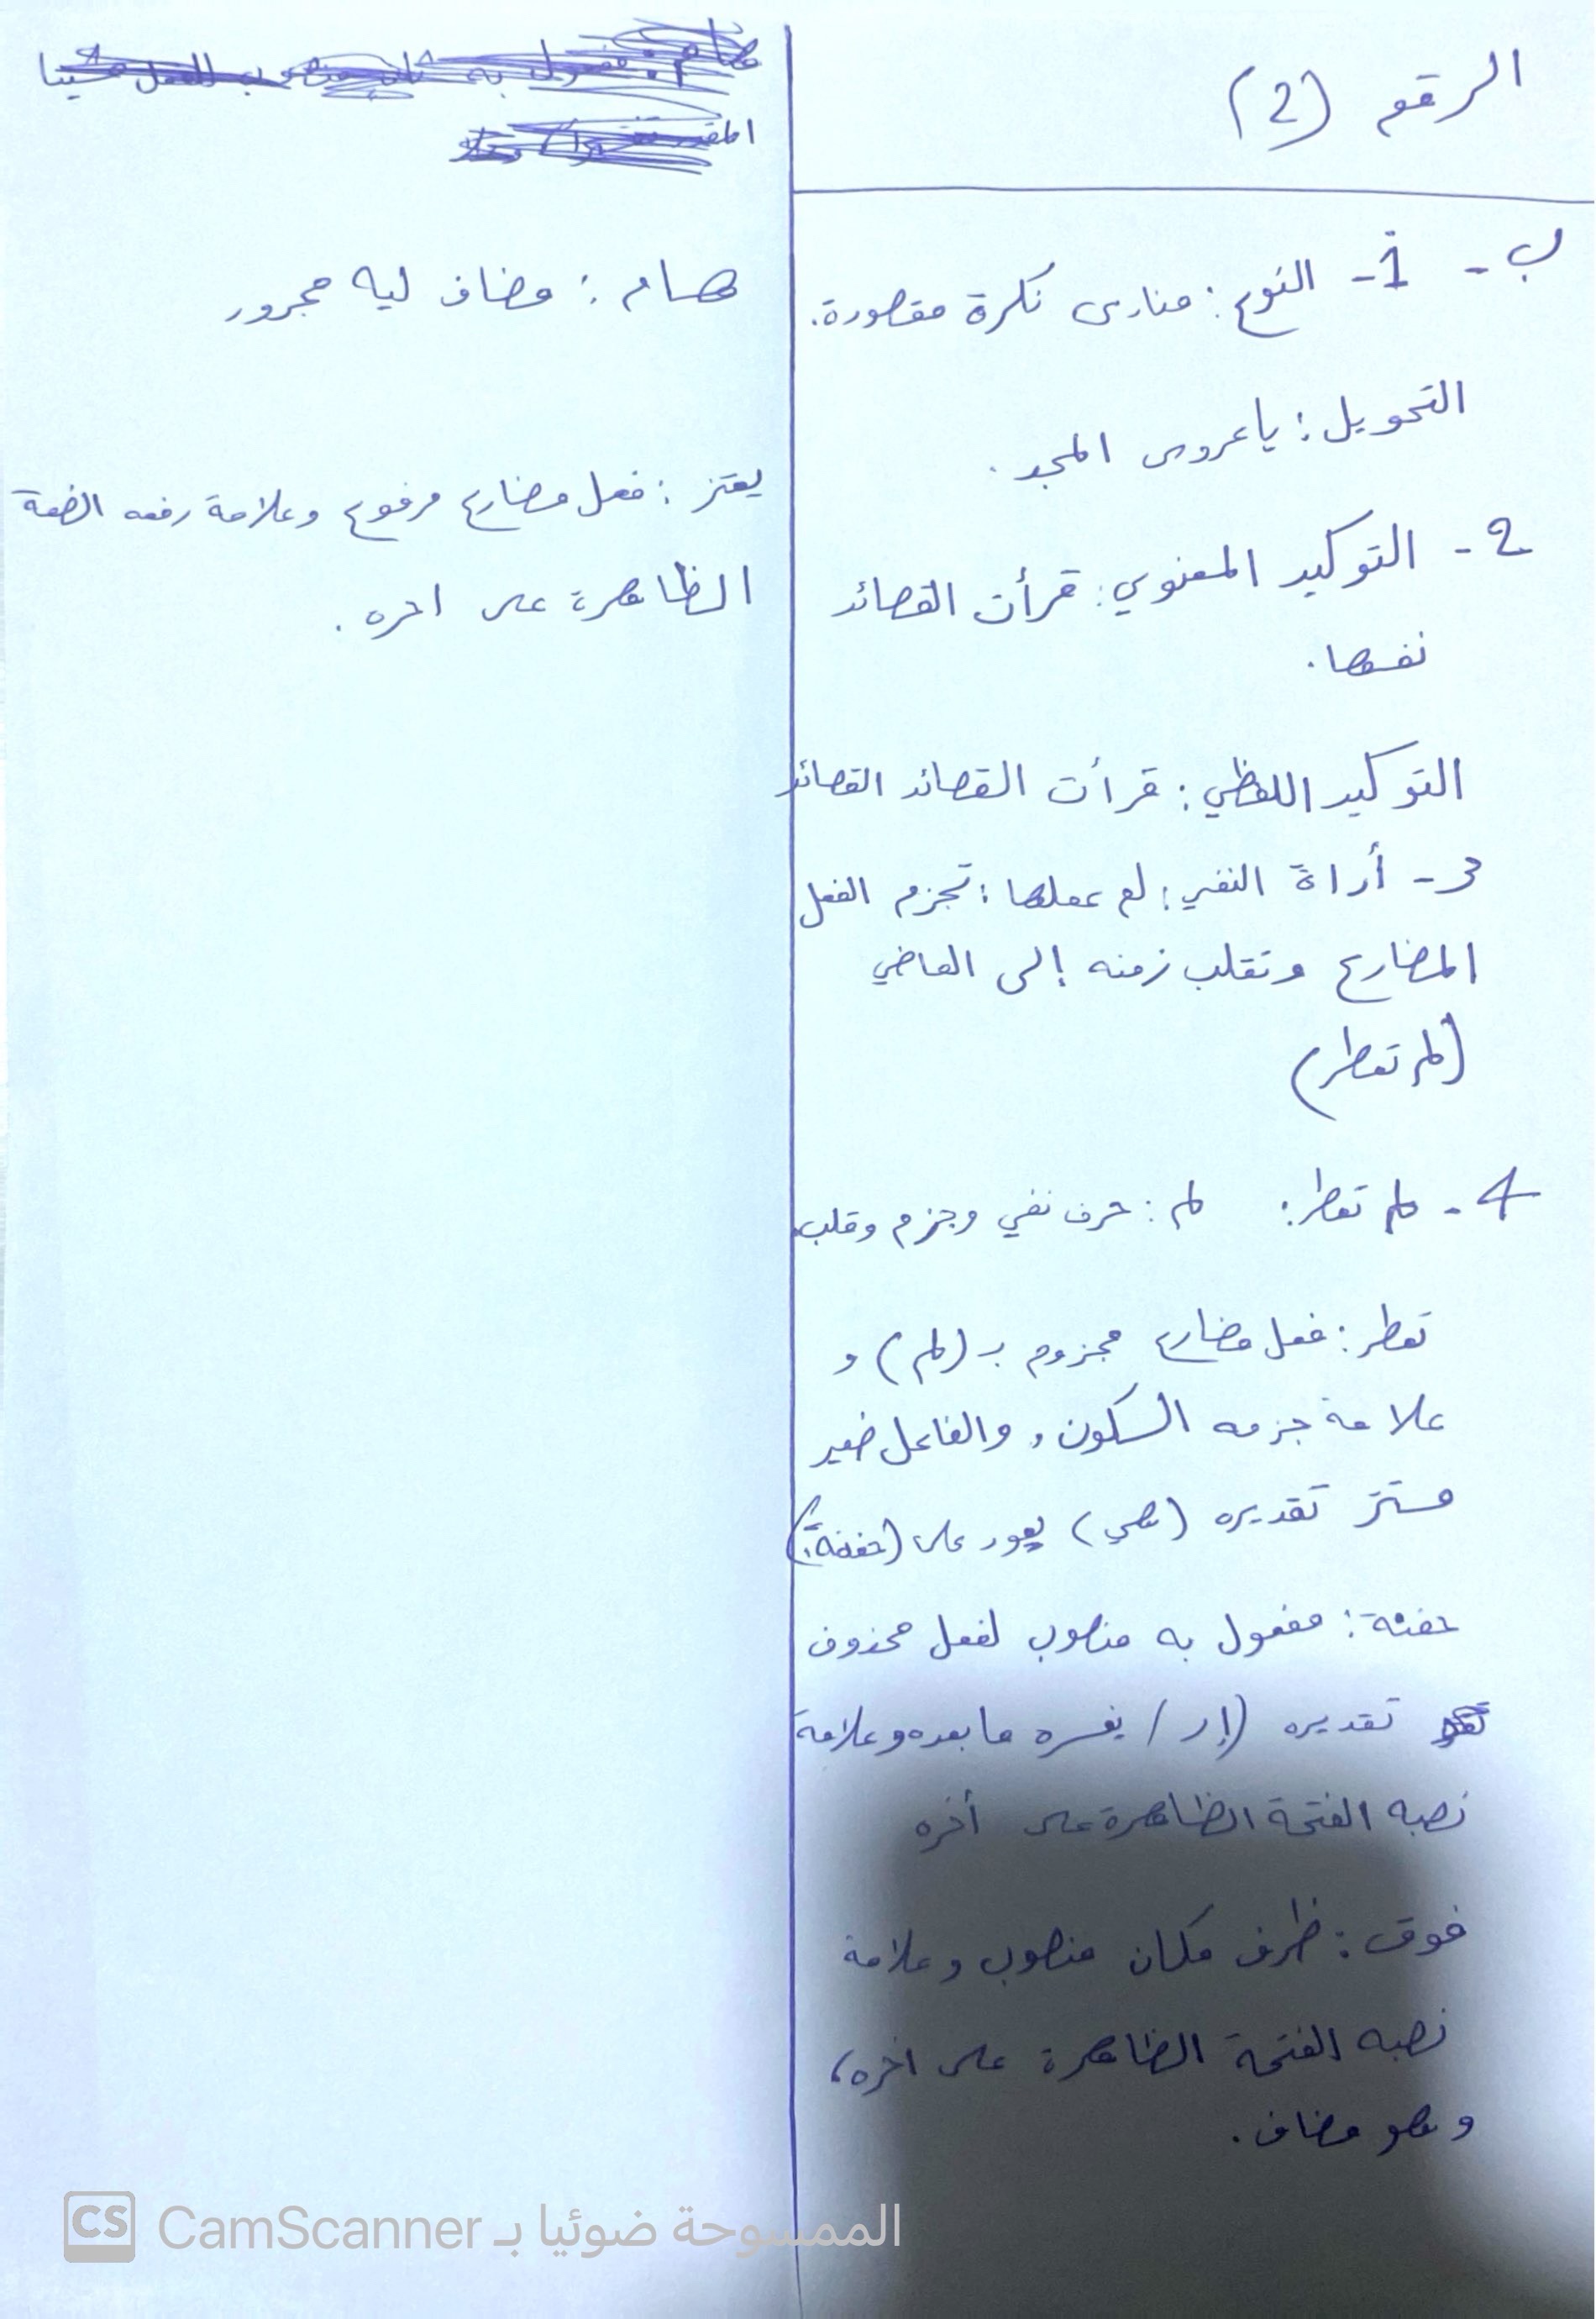 الرقم (2)
ب - 1 - النوع : منادى نكرة مقصورة.
التحويل : يا عروس المجد .
2 - التوكيد المعنوي : قرأت القصائد
نفسها .
التوكيد اللفظي : قرأت القصائد القصائد
3 - أداة النفي : لم عملها : تجزم الفعل
المضارع وتقلب زمنه إلى الماضي
(لم تعطر)
4 - لم تعطر : لم : حرف نفي وجزم وقلب.
تعطر : فعل مضارع مجزوم بـ (لم) و
علامة جزمه السكون , والفاعل ضمير
مستتر تقديره (هي) يعود على (حفنة).
حفنة : مفعول به منصوب لفعل محذوف
تقديره يفسره ما بعده وعلامة
نصبه الفتحة الظاهرة على أخره
فوق : ظرف مكان منصوب وعلامة
نصبه الفتحة الظاهرة على اخره،
وهو مضاف .
هام : مضاف ليه مجرور
يعتز : فعل مضارع مرفوع وعلامة رفعه الضمة
الظاهرة على اخره .
الممسوحة ضوئيا بـ CamScanner
CS